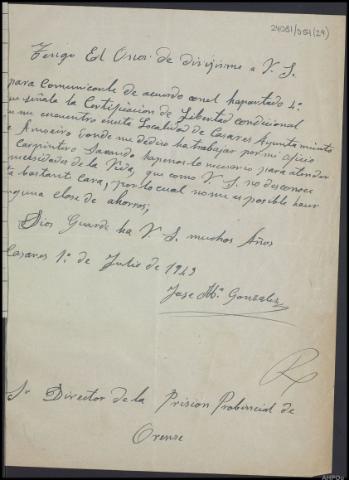 24081/384(29)
Tengo El Onor de dirijirme a V. S.
para comunicarle de acuerdo con el hapartado 4º
que señala la Certificacion de Libertad condicional
me encuentro en esta Localidad de Casares Ayuntamiento
donde me dedico ha trabajar por mi oficio
Carpintero Sacando hapenas lo necesario para atender
necesidades de la Vida, que como V. S. no desconoce
bastante cara, por lo cual no me es posible hacer
ninguna clase de ahorros;
Dios Guarde ha V. S. muchos Años
Casares 1º de Julio de 1943
Jose Mª Gonzalez
Sr Director de la Prision Probincial de
Orense
AHPOu